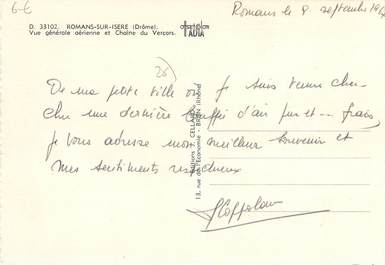 6€
D. 33102. ROMANS-SUR-ISERE (Drôme).
Vue générale aérienne et Chaîne du Vercors.
ADIA
Romans le 8 septembre
(26)
De ma petite ville où je suis venu cher-
cher une dernière bouffée d'air pur et -- frais,
je vous adresse mon meilleur souvenir et
mes sentiments respectueux
Editions J. CELLARD
13, rue de l'Economie - BRON (Rhône)